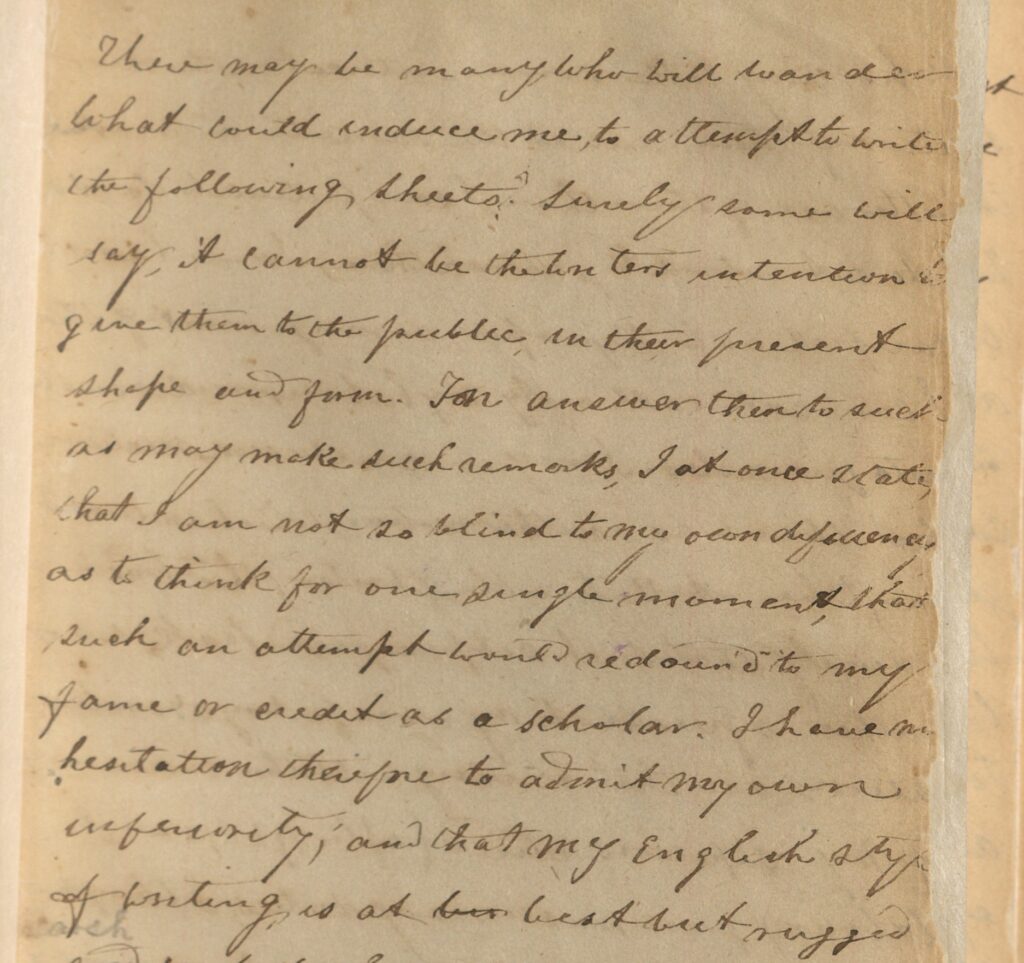 There may be many who will wander
What could induce me, to attempt to write
the following sheets? Surely some will
say, it cannot be the writers intention to
give them to the public, in their present
shape and form. In answer then to such
as may make such remarks, I at once state,
that I am not so blind to my own
as to think for one single moment, that
such an attempt would redound to my
fame or credit as a scholar. I have no
hesitation therefore to admit my own
inferiority; and that my English
of writing, is at best but rugged